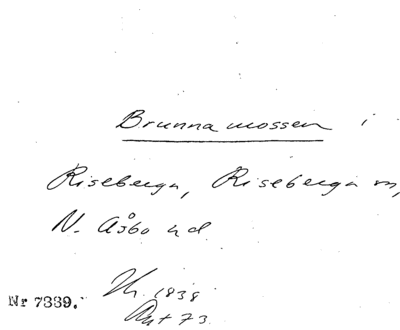 Brunnamossen i
Riseberga, Riseberga sn,
N. Åsbo hd.
1838
Nr 7339.
73